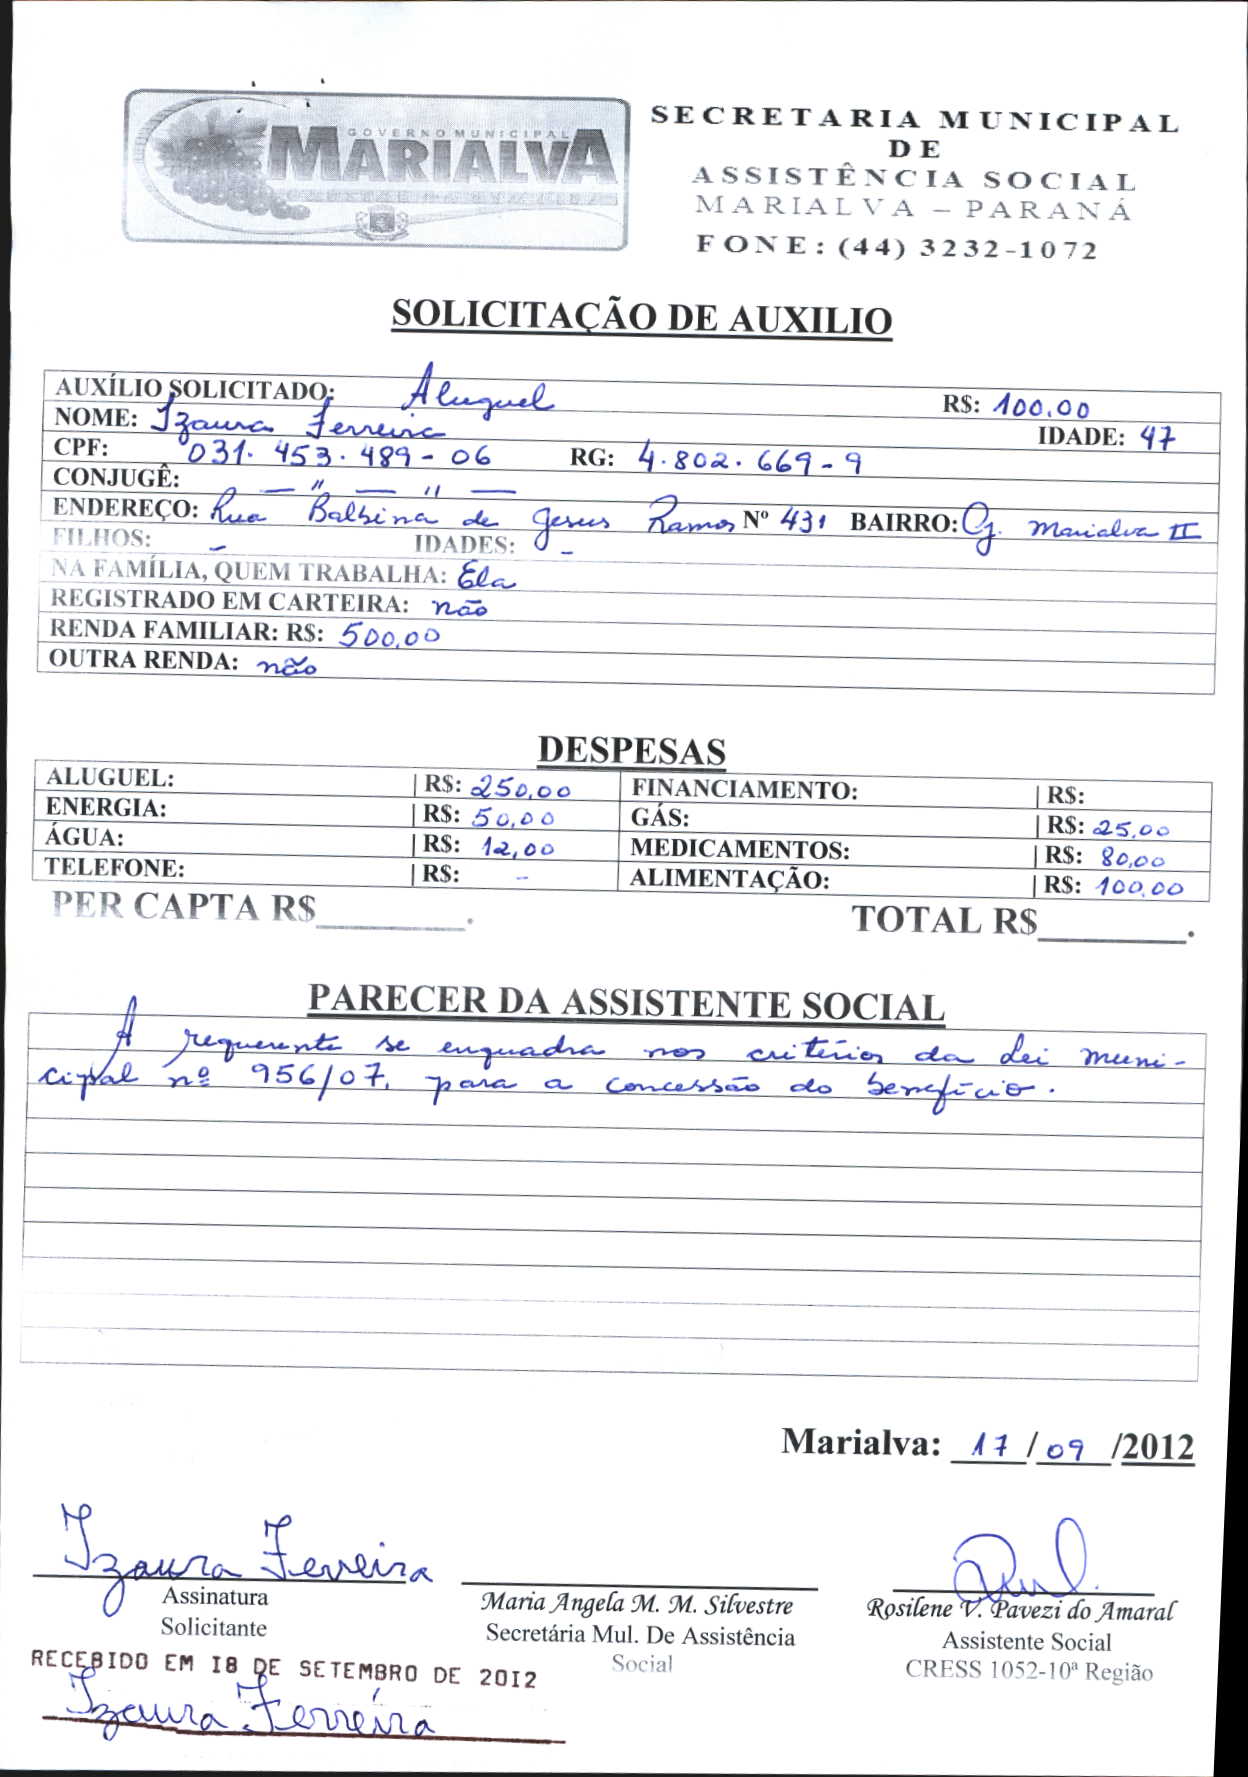 GOVERNO MUNICIPAL
MARIALVA
SECRETARIA MUNICIPAL
DE
ASSISTÊNCIA SOCIAL
MARIALVA – PARANÁ
FONE: (44) 3232-1072
SOLICITAÇÃO DE AUXILIO
AUXÍLIO SOLICITADO: Aluguel R$: 100,00
NOME: Izaura Ferreira IDADE: 47
CPF: 031.453.489-06 RG: 4.802.669-9
CONJUGÊ: — " — " —
ENDEREÇO: Rua Balbina de Jesus Ramos Nº 431 BAIRRO: Cj. Marialva II
FILHOS: - IDADES: -
NA FAMÍLIA, QUEM TRABALHA: Ela
REGISTRADO EM CARTEIRA: não
RENDA FAMILIAR: R$: 500,00
OUTRA RENDA: não
DESPESAS
ALUGUEL: | R$: 250,00 FINANCIAMENTO: | R$:
ENERGIA: | R$: 50,00 GÁS: | R$: 25,00
ÁGUA: | R$: 12,00 MEDICAMENTOS: | R$: 80,00
TELEFONE: | R$: - ALIMENTAÇÃO: | R$: 100,00
PER CAPTA R$________. TOTAL R$________.
PARECER DA ASSISTENTE SOCIAL
A requerente se enquadra nos critérios da Lei Muni-
cipal nº 956/07, para a concessão do benefício.
Marialva: 17/09/2012
Izaura Ferreira
Assinatura
Solicitante
Maria Angela M. M. Silvestre
Secretária Mul. De Assistência
Social
Rosilene V. Pavezi do Amaral
Assistente Social
CRESS 1052-10ª Região
RECEBIDO EM 18 DE SETEMBRO DE 2012
Izaura Ferreira